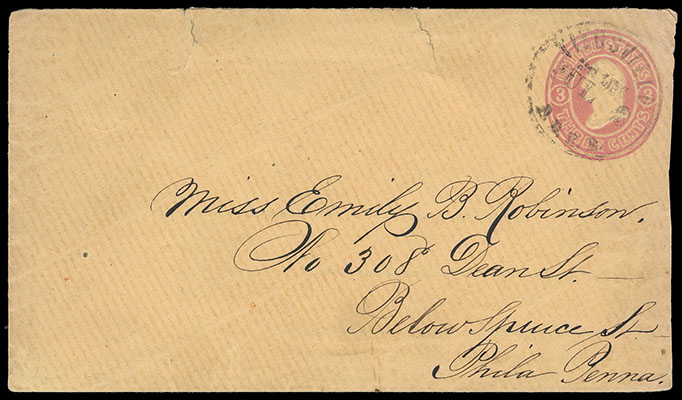 THREE CENTS
3
Miss Emily B. Robinson.
No 308 Dean St.
Below Spruce St
Phila Penna.